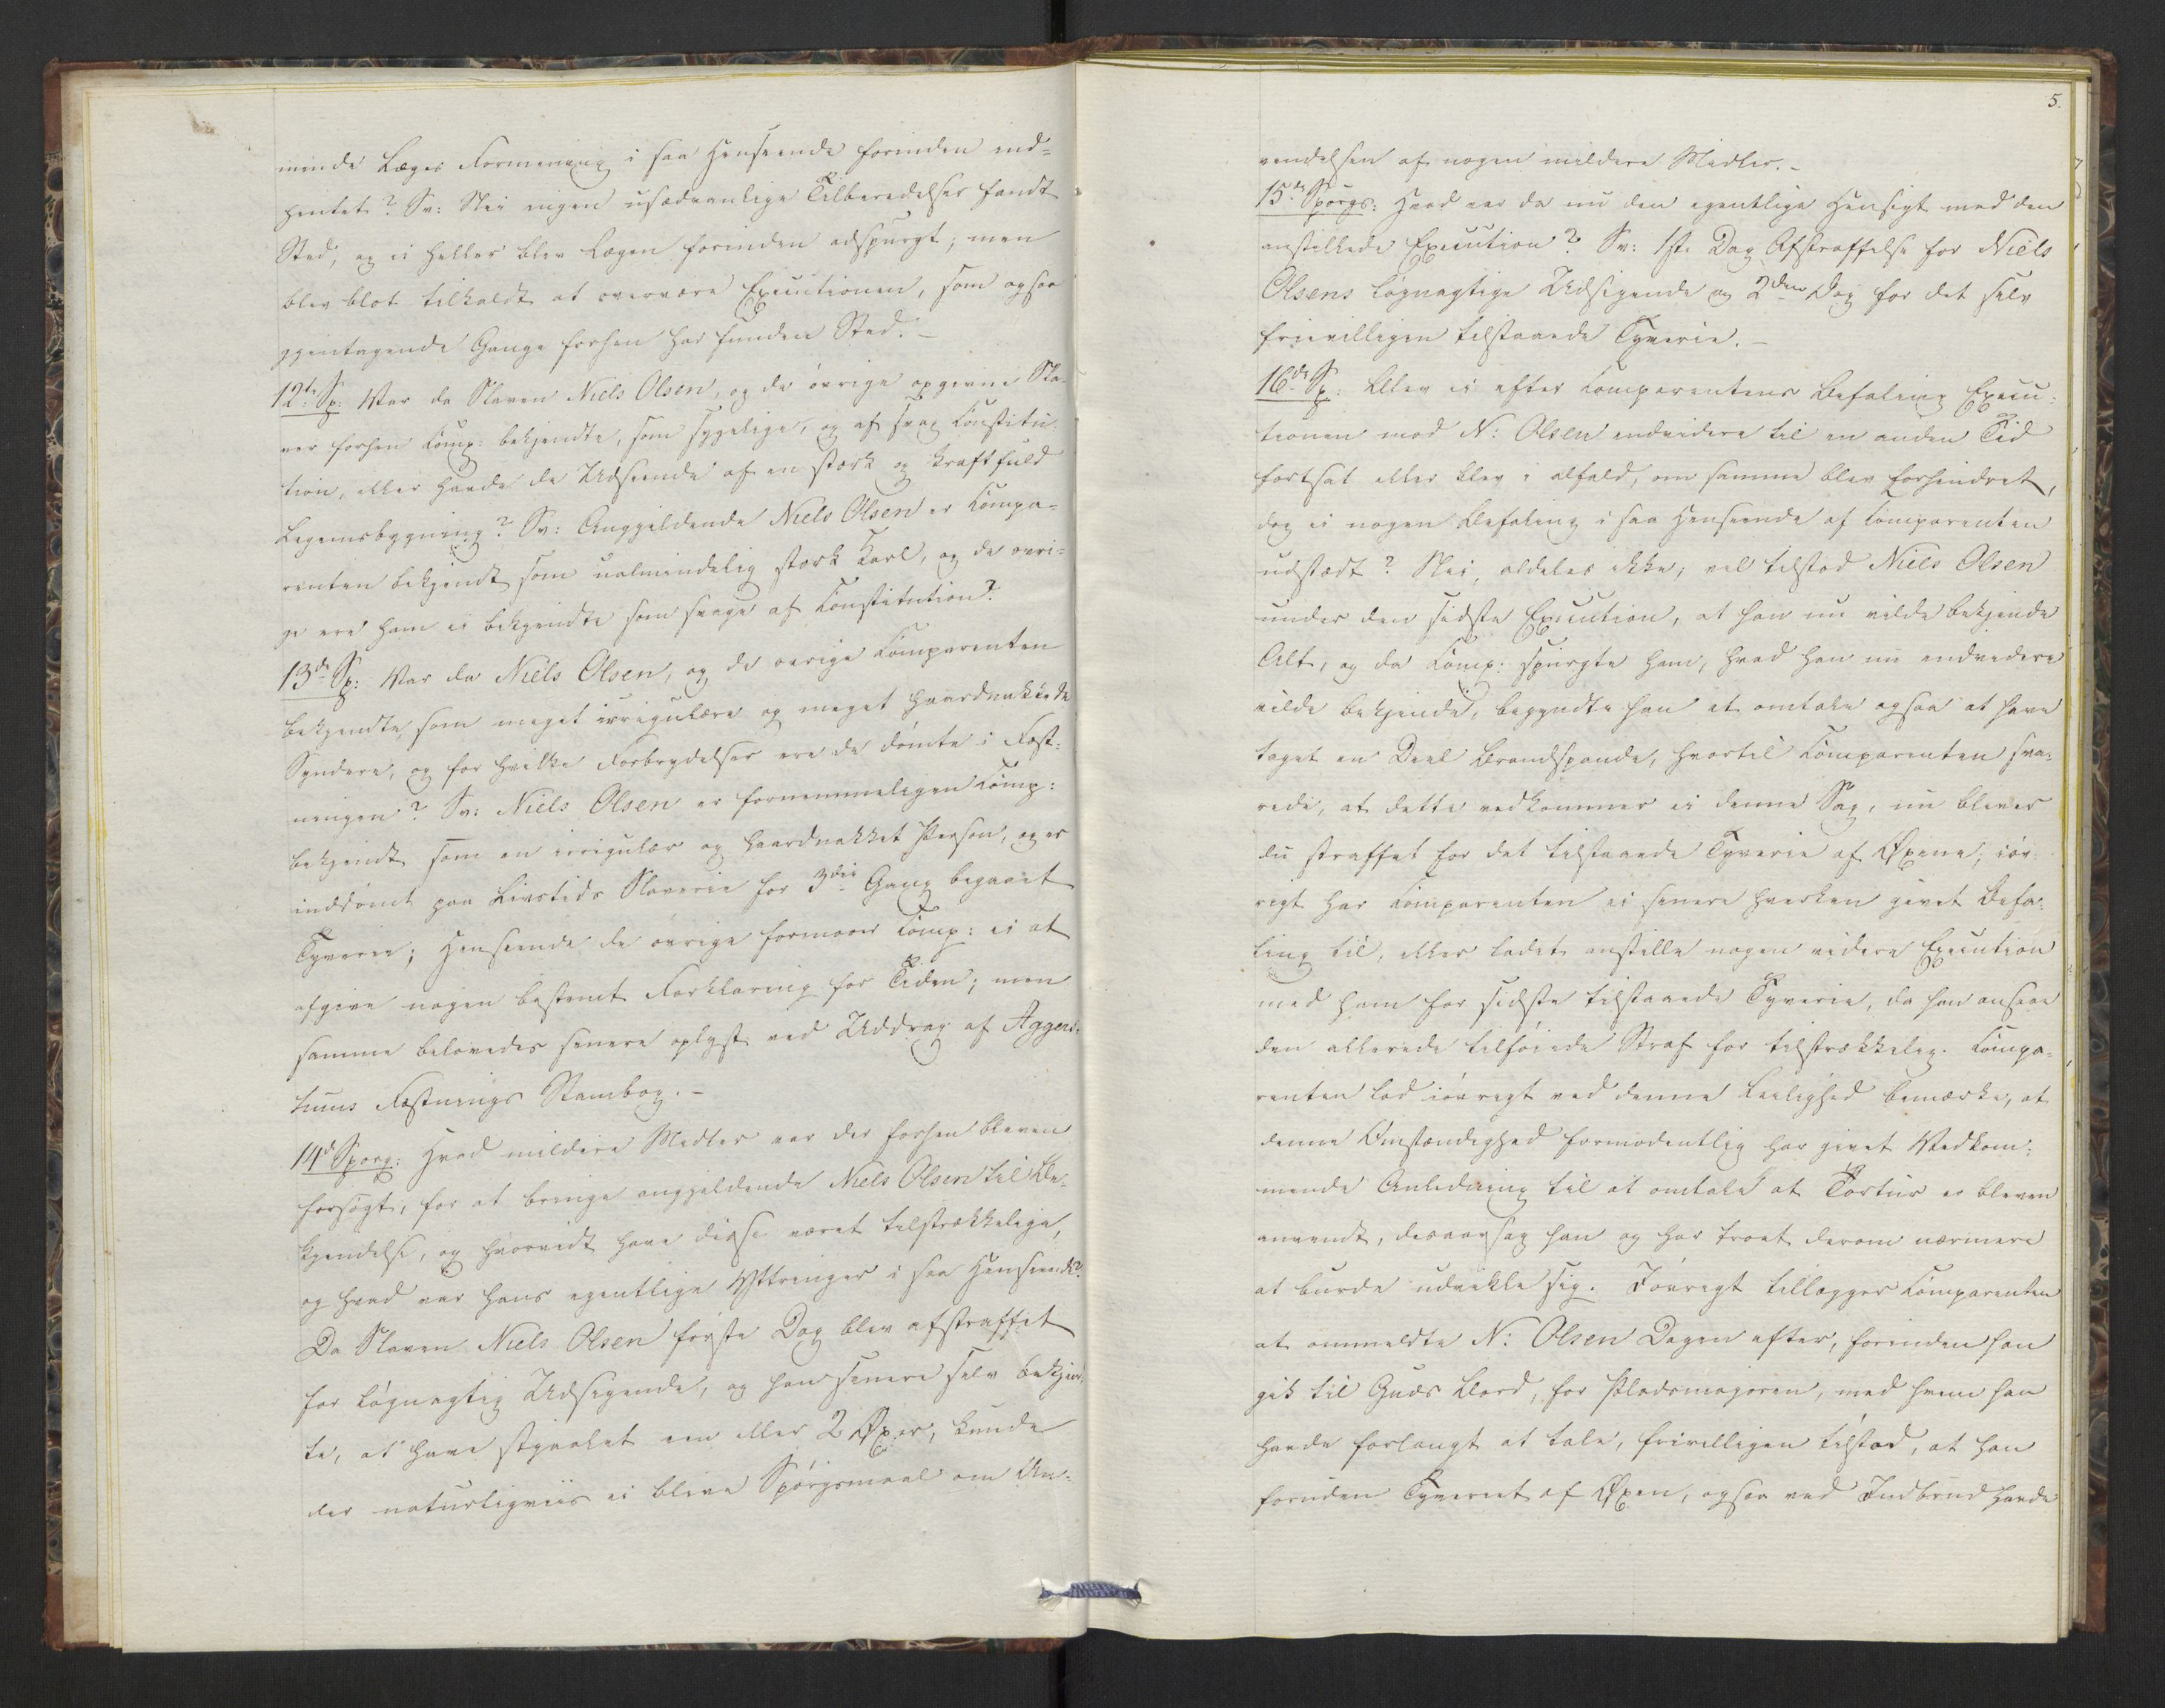 minde Læges Formening i saa Henseende forinden ind-
hentet? Sv: Nei ingen usædvanlige Tilberedelser fandt
Sted, og ei heller blev Lægen forinden adspurgt; men
blev blot tilkaldt at overvære Executionen, som ogsaa
gjentagende Gange forhen har funden Sted. –
12te Sp: Var da Slaven Niels Olsen, og de øvrige opgivne Sla-
ver forhen Comp: bekjendte, som sygelige, og af svag Constitu-
tion, eller havde de Udseende af en stærk og kraftfuld
Legemsbygning? Sv: Angjeldende Niels Olsen er Compa-
renten bekjendt som ualmindelig stærk Karl, og de øvri-
ge ere ham ei bekjendte som svage af Constitution?
13de Sp: Var da Niels Olsen, og de øvrige Comparenten
bekjendte som meget irregulære og meget haardnakkede
Syndere, og for hvilke Forbrydelser ere de dømte i Fæst-
ningen? Sv: Niels Olsen er fornemmeligen Comp:
bekjendt som en irregulær og haardnakket Person, og er
inddømt paa Livstids Slaverie for 3die Gang begaaet
Tyverie; Henseende de øvrige formaaer Comp: ei at
afgive nogen bestemt Forklaring for Tiden; men
samme belovedes senere oplyst ved Uddrag af Aggers-
huus Fæstnings Stambog. –
14de Spørg: Hvad mildere Midler var der forhen bleven
forsøgt, for at bringe angjældende Niels Olsen til Be-
kjendelse, og hvorvidt have disse været tilstrækkelige,
og hvad var hans egentlige Yttringer i saa Henseende?
Da Slaven Niels Olsen første Dag blev afstraffet
for løgnagtig Udsigende, og han senere selv bekjend-
te, at have stjaalet een eller 2 Øxer, kunde
der naturligviis ei blive Spørgsmaal om An-
5.
vendelsen af nogen mildere Midler. –
15de Spørgs: Hvad var da nu den egentlige Hensigt med den
anstillede Execution? Sv: 1ste Dag Afstraffelse for Niels
Olsens løgnagtige Udsigende og 2den Dag for det selv
frievilligen tilstaaede Tyverie. –
16de Sp: Blev ei efter Comparentens Befaling Execu-
tionen mod N: Olsen endvidere til en anden Tid
fortsat eller blev i alfald, om samme blev forhindret,
dog ei nogen Befaling i saa Henseende af Comparenten
udstædt? Nei, aldeles ikke, vel tilstod Niels Olsen
under den sidste Execution, at han nu vilde bekjende
Alt, og da Comp: spurgte ham, hvad han nu endvidere
vilde bekjende, begyndte han at omtale ogsaa at have
taget en Deel Brandspande, hvortil Comparenten sva-
rede, at dette vedkommer ei denne Sag, nu bliver
du straffet for det tilstaaede Tyverie af Øxene, iøv-
rigt har Comparenten ei senere hverken givet Befa-
ling til, eller ladet anstille nogen videre Execution
med ham for sidste tilstaaede Tyverie, da han ansaae
den allerede tilføiede Straf for tilstrækkelig. Compa-
renten lod iøvrigt ved denne Leilighed bemærke, at
denne Omstændighed formodentlig har givet Vedkom-
mende Anledning til at omtale at Tortur er bleven
anvendt, desaarsag han og har troet derom nærmere
at burde udvikle sig. Iøvrigt tillægger Comparenten
at ommeldte N: Olsen Dagen efter, forinden han
gik til Guds Bord, for Pladsmajoren, med hvem han
havde forlangt at tale, frivilligen tilstod, at han
foruden Tyveriet af Øxen, ogsaa ved Indbrud havde